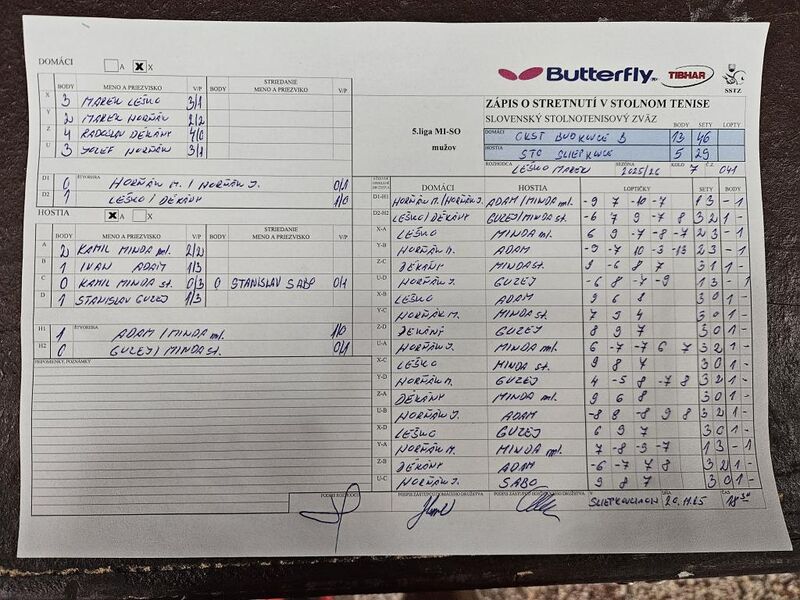 DOMÁCI A X X
Butterfly TIBHAR SSTZ
BODY MENO A PRIEZVISKO V/P BODY STRIEDANIE MENO A PRIEZVISKO V/P
X 3 MAREK LEŠKO 3/1
Y 2 MAREK HORŇÁK 2/2
Z 4 RADOSLAV DÉKÁNY 4/0
U 3 JOZEF HORŇÁK 3/1
D1 ŠTVORHRA 0 HORŇÁK M. / HORŇÁK J. 0/1
D2 1 LEŠKO / DÉKÁNY 1/0
HOSTIA X A X
BODY MENO A PRIEZVISKO V/P BODY STRIEDANIE MENO A PRIEZVISKO V/P
A 2 KAMIL MINDA ml. 2/2
B 1 IVAN ADAM 1/3
C 0 KAMIL MINDA st. 0/3 0 STANISLAV SABO 0/1
D 1 STANISLAV GUZEJ 1/3
H1 ŠTVORHRA 1 ADAM / MINDA ml. 1/0
H2 0 GUZEJ / MINDA st. 0/1
PRIPOMIENKY, POZNÁMKY
5.liga MI-SO
mužov
ZÁPIS O STRETNUTÍ V STOLNOM TENISE
SLOVENSKÝ STOLNOTENISOVÝ ZVÄZ BODY SETY LOPTY
DOMÁCI OKST BUDKOVCE B 13 46
HOSTIA STO SLIEPKOVCE 5 29
ROZHODCA LEŠKO MAREK SEZÓNA 2025/26 KOLO 7 Č.Z. 041
DOMÁCI HOSTIA LOPTIČKY SETY BODY
D1-H1 HORŇÁK M. / HORŇÁK J. ADAM / MINDA ml. -9 7 -10 -7 1 3 - 1
D2-H2 LEŠKO / DÉKÁNY GUZEJ / MINDA st. -6 7 9 -7 8 3 2 1 -
X-A LEŠKO MINDA ml. 6 9 -7 -8 -7 2 3 - 1
Y-B HORŇÁK M. ADAM -9 7 10 -3 -13 2 3 - 1
Z-C DÉKÁNY MINDA st. -9 6 8 7 3 1 1 -
U-D HORŇÁK J. GUZEJ -6 8 -7 -9 1 3 - 1
X-B LEŠKO ADAM 9 6 8 3 0 1 -
Y-C HORŇÁK M. MINDA st. 7 9 4 3 0 1 -
Z-D DÉKÁNY GUZEJ 8 9 7 3 0 1 -
U-A HORŇÁK J. MINDA ml. 6 -7 -7 6 7 3 2 1 -
X-C LEŠKO MINDA st. 9 8 7 3 0 1 -
Y-D HORŇÁK M. GUZEJ 4 -5 8 -7 8 3 2 1 -
Z-A DÉKÁNY MINDA ml. 9 6 8 3 0 1 -
U-B HORŇÁK J. ADAM -8 8 -8 9 8 3 2 1 -
X-D LEŠKO GUZEJ 6 9 7 3 0 1 -
Y-A HORŇÁK M. MINDA ml. 7 -8 -9 -7 1 3 - 1
Z-B DÉKÁNY ADAM -6 -7 7 8 3 2 1 -
U-C HORŇÁK J. SABO 9 8 7 3 0 1 -
PODPIS ROZHODCU PODPIS ZÁSTUPCU DOMÁCEHO DRUŽSTVA PODPIS ZÁSTUPCU HOSŤUJÚCEHO DRUŽSTVA V SLIEPKOVCIACH DŇA 20.11.25 ČAS 18 30